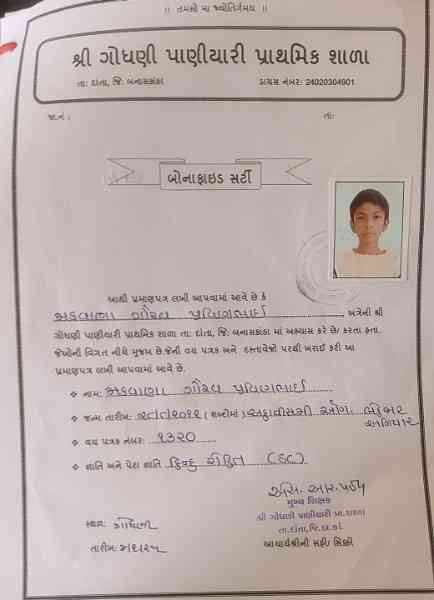 ।। તમસો મા જ્યોતિર્ગમય ।।
શ્રી ગોધણી પાણીયારી પ્રાથમિક શાળા
તા: દાંતા, જિ: બનાસકાંઠા ડાયસ નંબર: 24020304901
જા.નં : તા:
બોનાફાઇડ સર્ટી
આથી પ્રમાણપત્ર લખી આપવામાં આવે છે કે
મકવાણા ગૌરવ પ્રવિણભાઈ અત્રેની શ્રી
ગોધણી પાણીયારી પ્રાથમિક શાળા તા: દાંતા, જિ: બનાસકાંઠા માં અભ્યાસ કરે છે/ કરતા હતા.
જેઓની વિગત નીચે મુજબ છે.જેની વય પત્રક અને દસ્તાવેજો પરથી ખરાઈ કરી આ
પ્રમાણપત્ર લખી આપવામાં આવે છે.
❖ નામ: મકવાણા ગૌરવ પ્રવિણભાઈ
❖ જન્મ તારીખ: (શબ્દોમાં) અઠ્ઠાવીસમી બે હજાર
અગિયાર
❖ વય પત્રક નંબર: ૧૩૨૦
❖ જ્ઞાતિ અને પેટા જ્ઞાતિ હિન્દુ રોહિત (SC)
મુખ્ય શિક્ષક
શ્રી ગોધણી પાણીયારી પ્રા.શાળા
તા.દાંતા,જિ.બ.કાં.
સ્થળ:
તારીખ: આચાર્યશ્રીની સહી/ સિક્કો